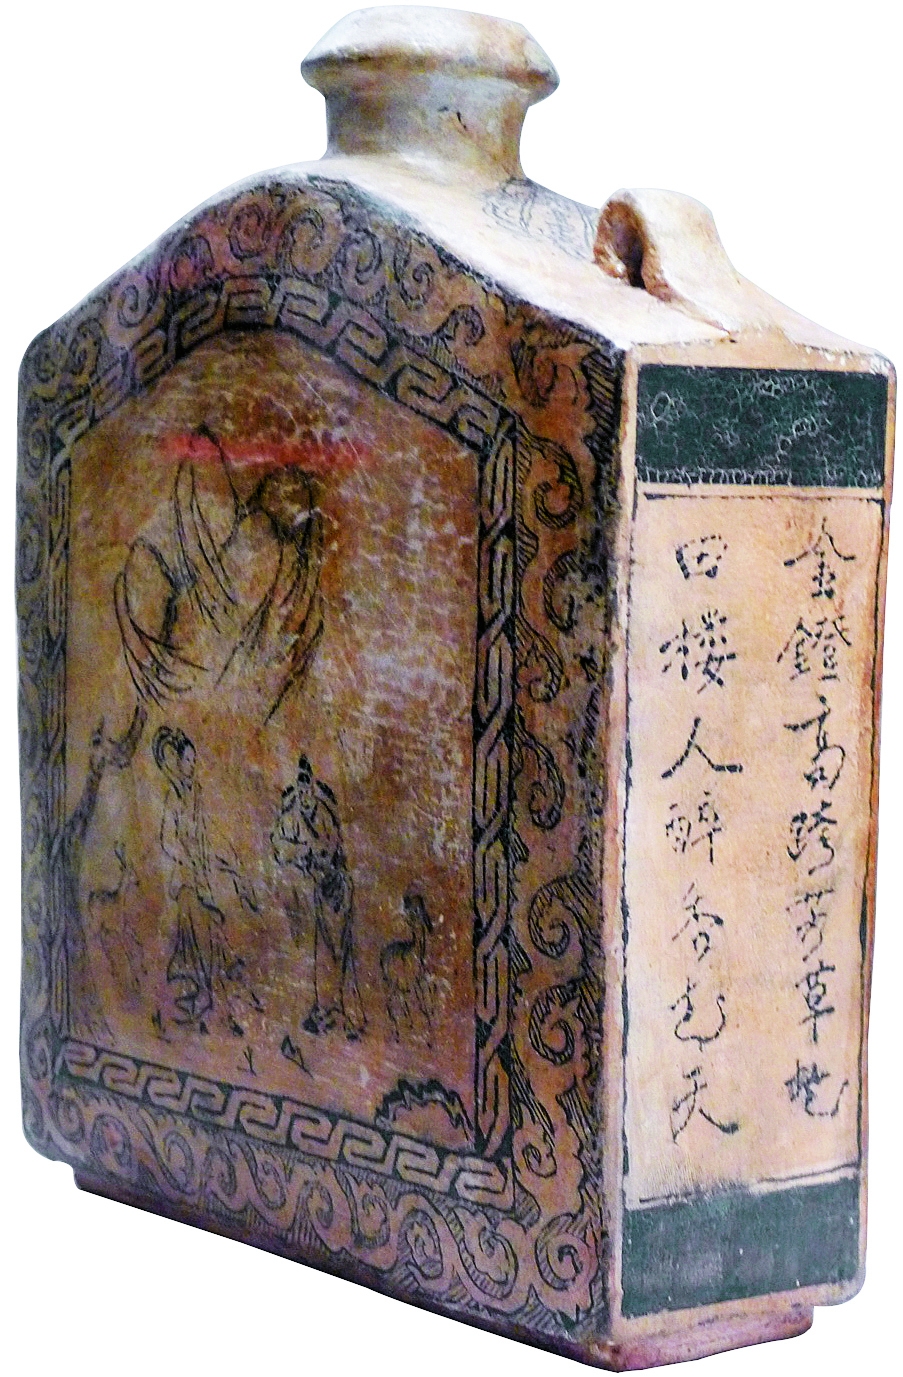 金鐙高跨芳草地
田樓人醉杏花天